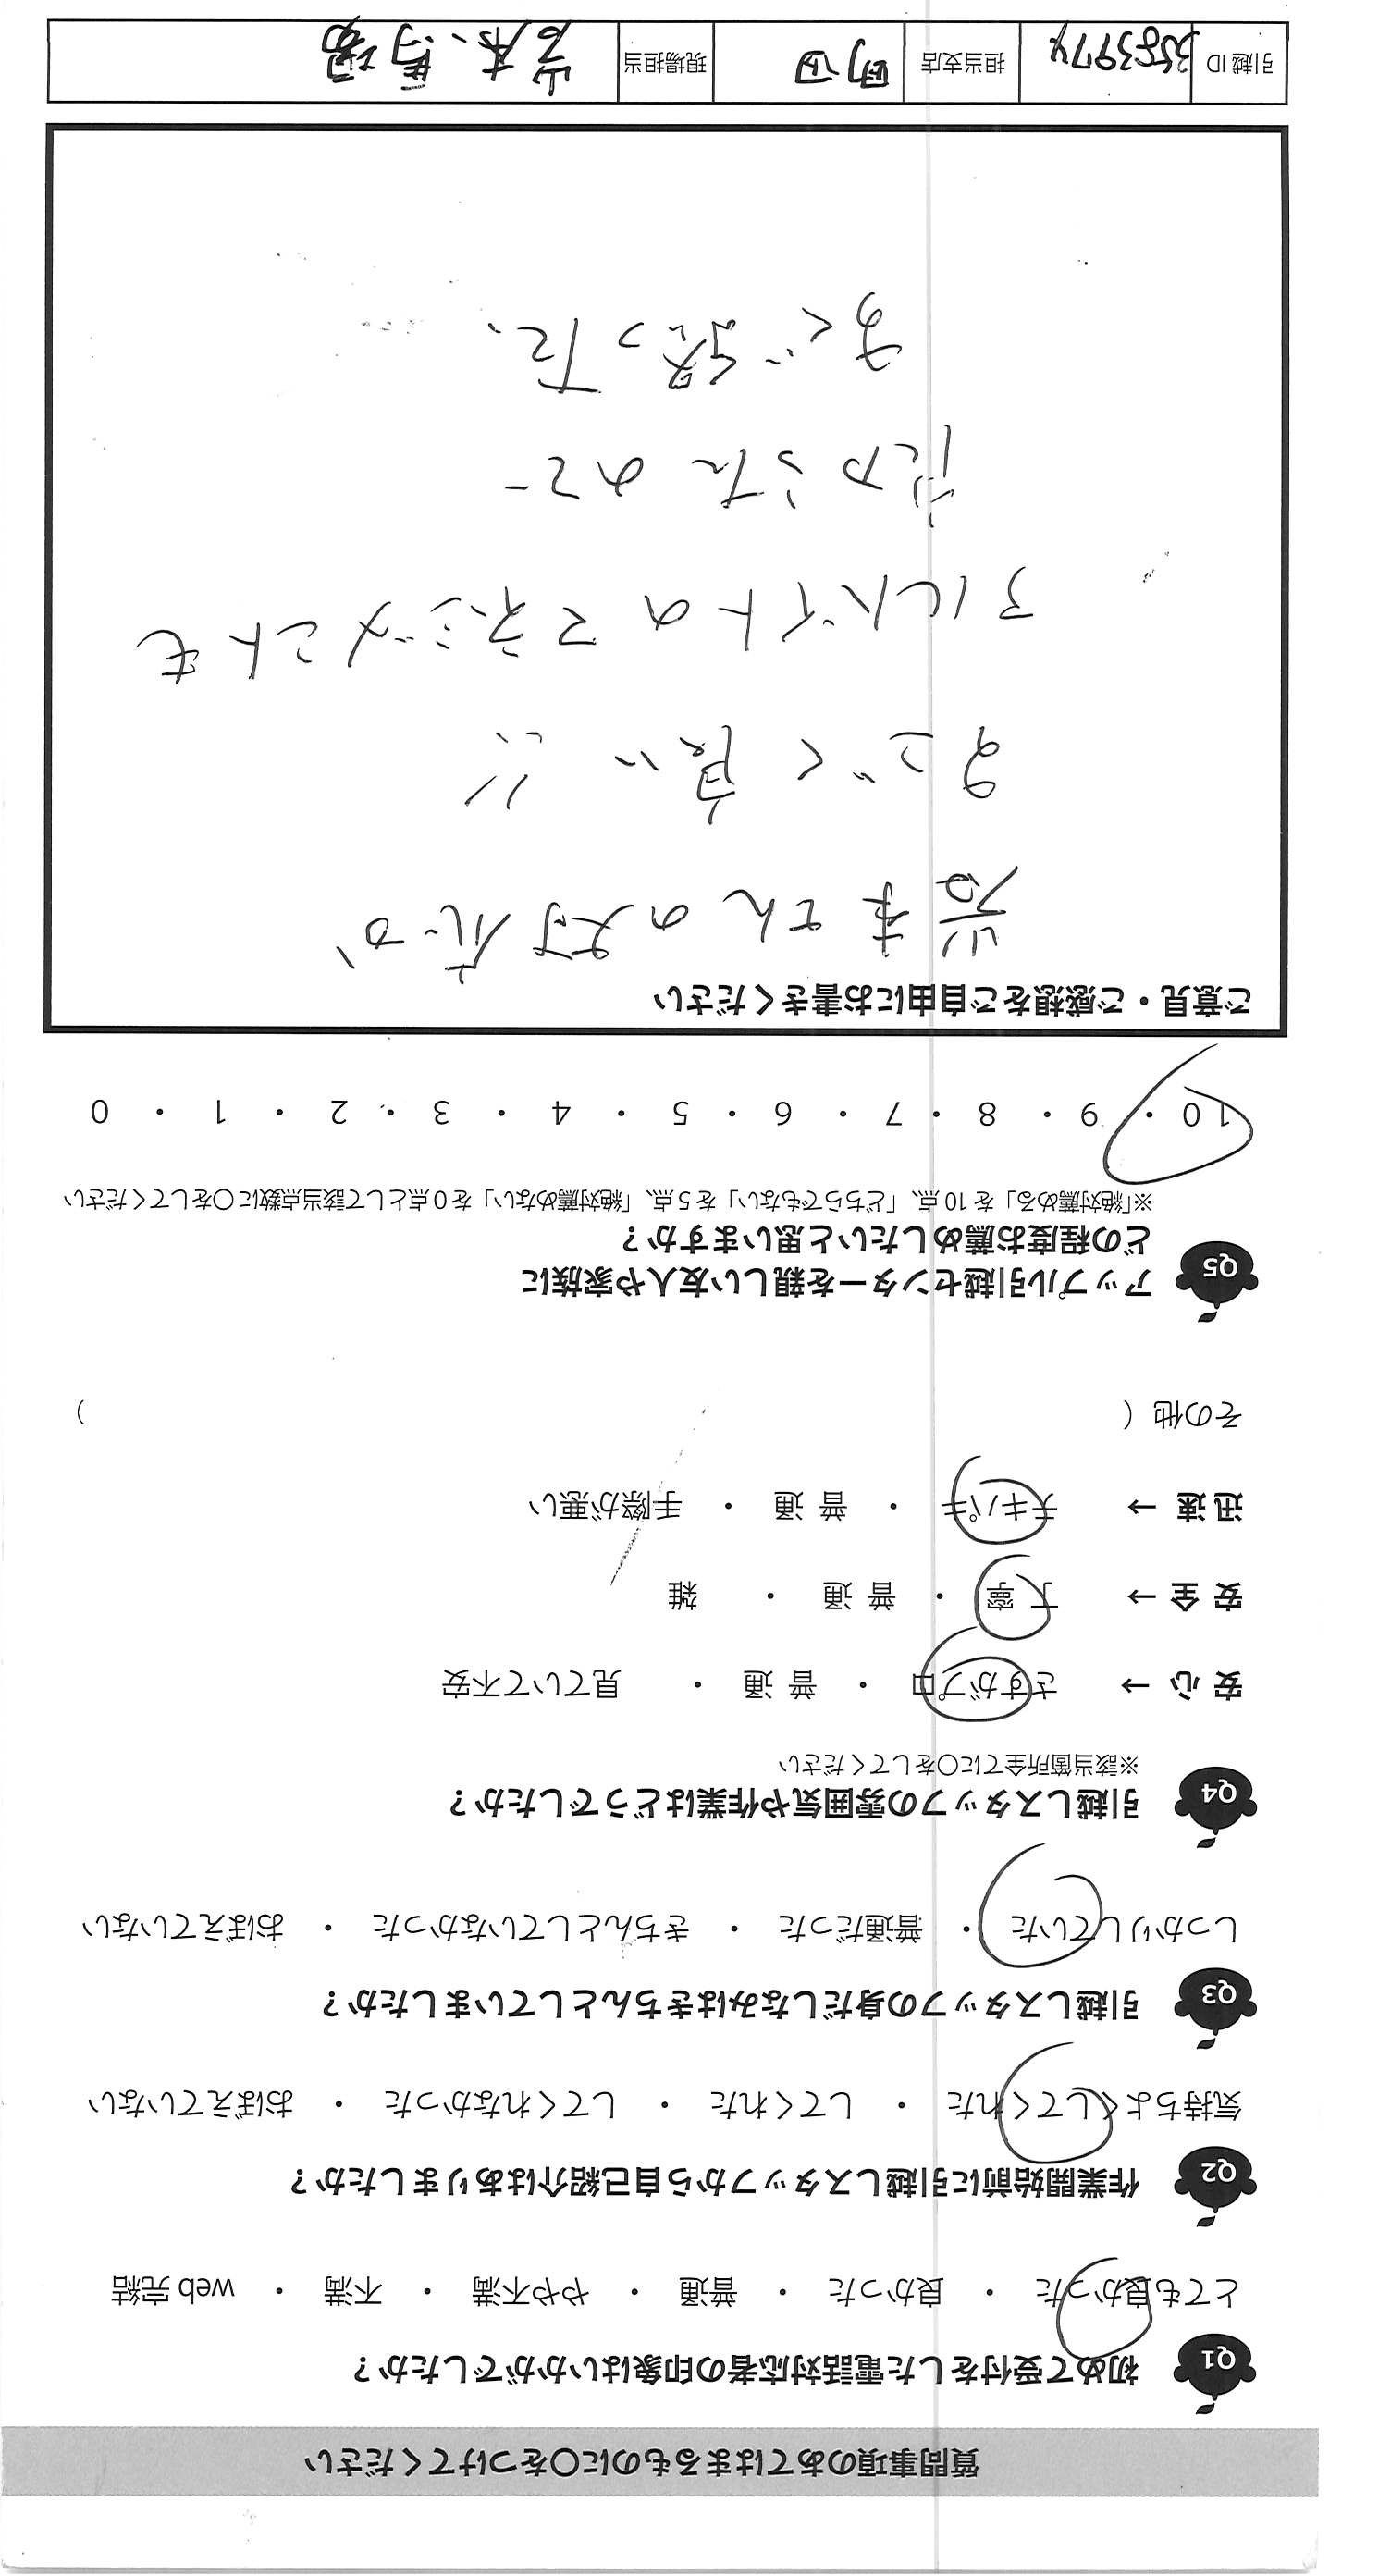 質問事項のあてはまるものに〇をつけてください
Q1 初めて受付をした電話対応者の印象はいかがでしたか？
とても良かった ・ 良かった ・ 普通 ・ やや不満 ・ 不満 ・ web 完結
Q2 作業開始前に引越しスタッフから自己紹介はありましたか？
気持ちよくしてくれた ・ してくれた ・ してくれなかった ・ おぼえていない
Q3 引越しスタッフの身だしなみはきちんとしていましたか？
しっかりしていた ・ 普通だった ・ きちんとしていなかった ・ おぼえていない
Q4 引越しスタッフの雰囲気や作業はどうでしたか？
※該当箇所全てに〇をしてください
安心 → さすがプロ ・ 普通 ・ 見ていて不安
安全 → 丁寧 ・ 普通 ・ 雑
迅速 → テキパキ ・ 普通 ・ 手際が悪い
その他（ ）
Q5 アップル引越センターを親しい友人や家族に
どの程度お薦めしたいと思いますか？
※「絶対薦める」を 10 点、「どちらでもない」を 5 点、「絶対薦めない」を 0 点として該当点数に〇をしてください
10 ・ 9 ・ 8 ・ 7 ・ 6 ・ 5 ・ 4 ・ 3 ・ 2 ・ 1 ・ 0
ご意見・ご感想をご自由にお書きください
岩本さんの対応が
すごく良い!!
アルバイトのマネジメントも
たので
った、
引越 ID 3583974 担当支店 町田 現場担当 岩本、馬場